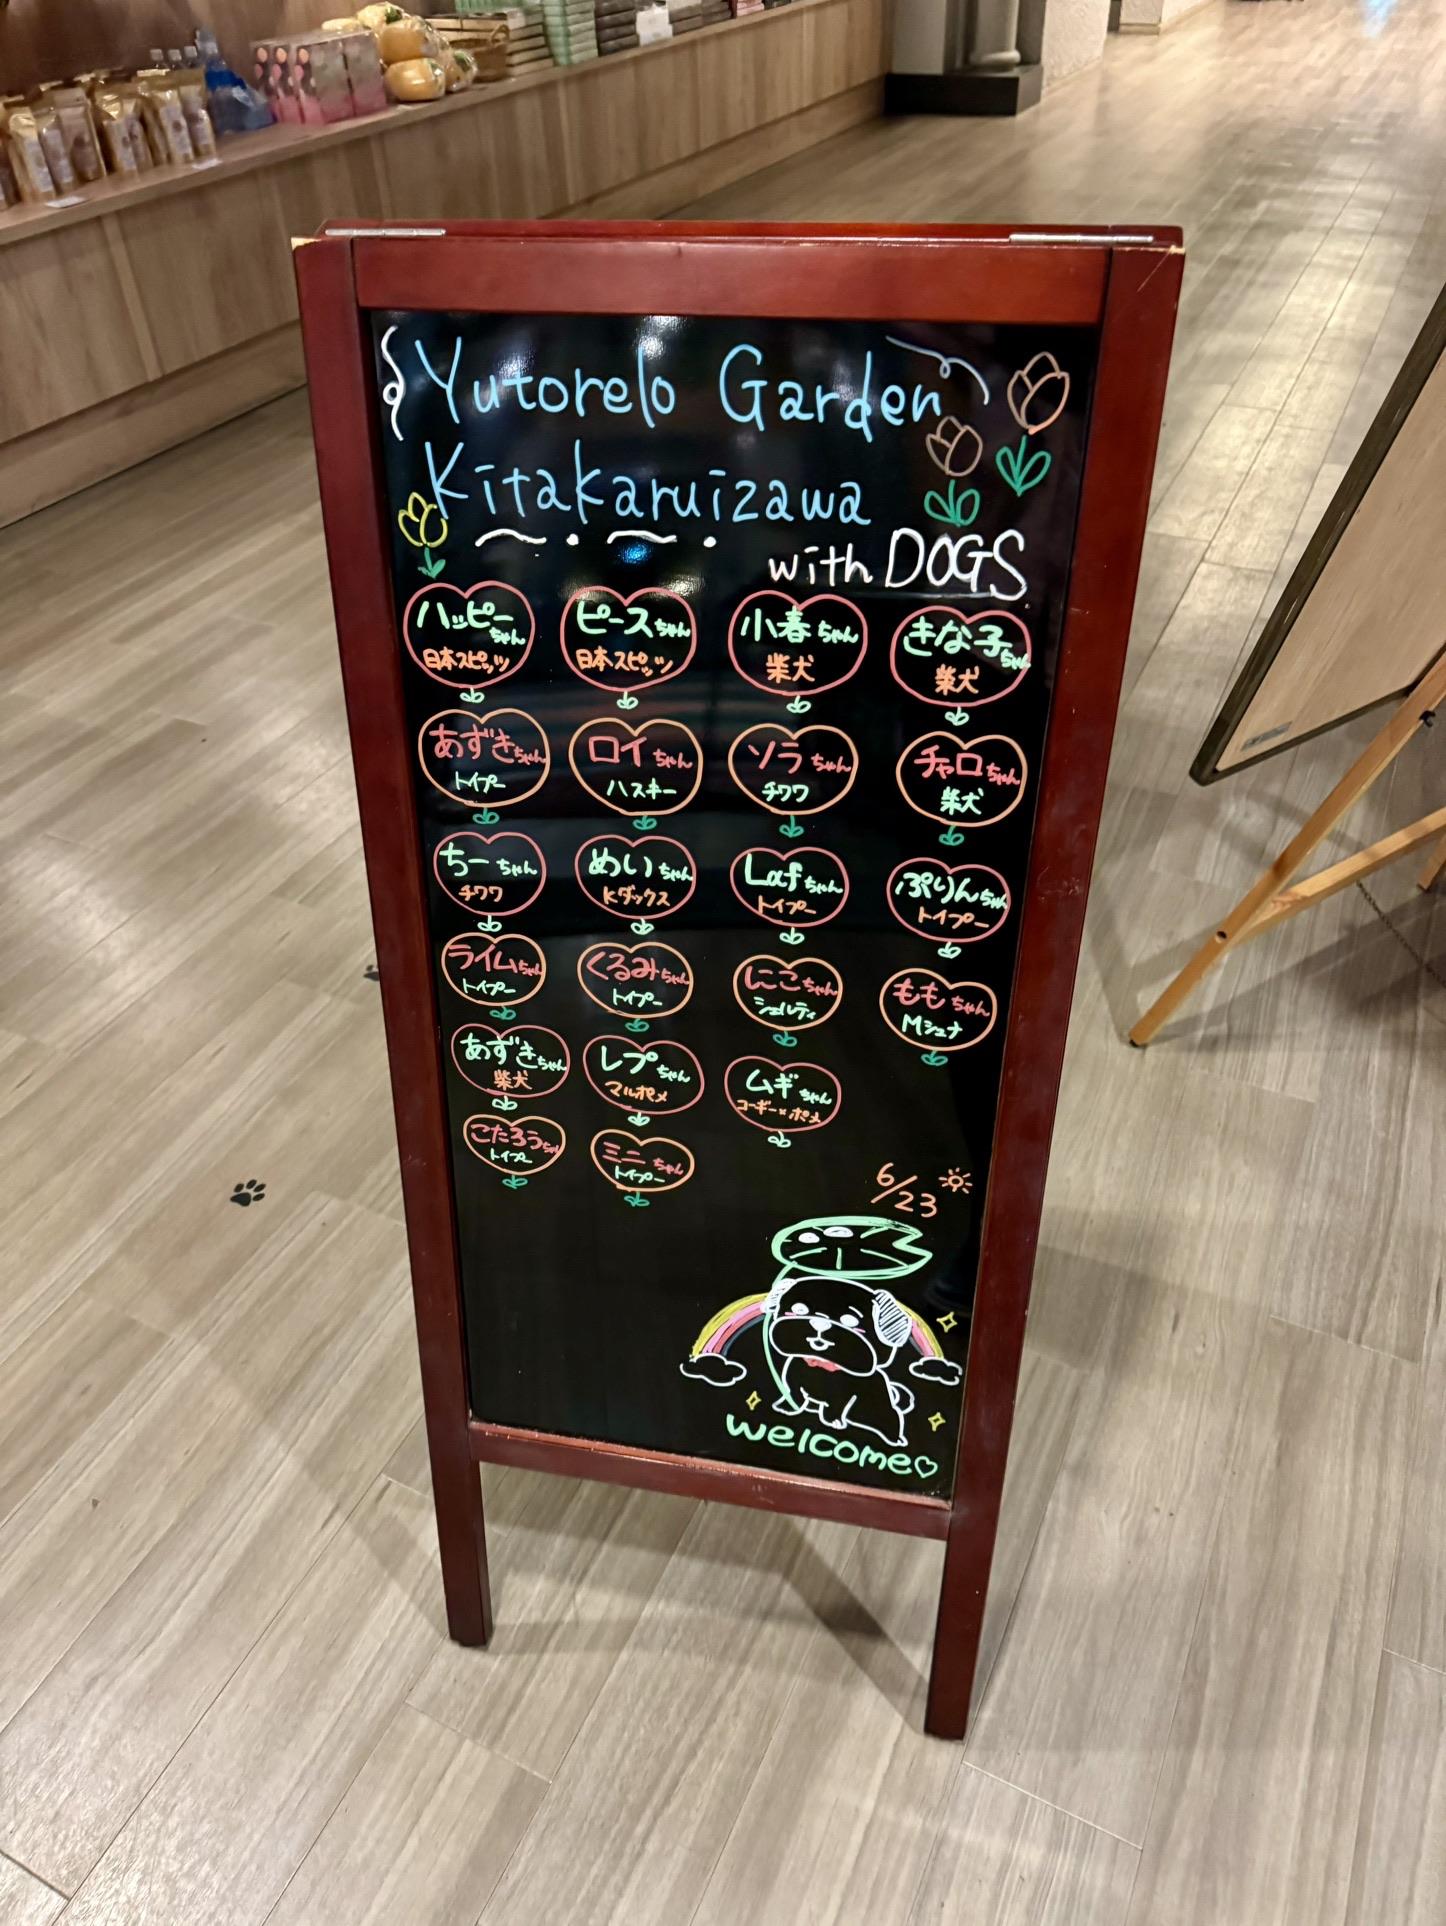 Yutorelo Garden
Kitakaruizawa
with DOGS
ハッピーちゃん
日本スピッツ
ピースちゃん
日本スピッツ
小春ちゃん
柴犬
きな子ちゃん
柴犬
あずきちゃん
トイプー
ロイちゃん
ハスキー
ソラちゃん
チワワ
チャロちゃん
柴犬
ちーちゃん
チワワ
めいちゃん
Kダックス
Lafちゃん
トイプー
ぷりんちゃん
トイプー
ライムちゃん
トイプー
くるみちゃん
トイプー
にこちゃん
シェルティ
ももちゃん
Mシュナ
あずきちゃん
柴犬
レプちゃん
マルポメ
ムギちゃん
コーギー×ポメ
こたろうちゃん
トイプー
ミニちゃん
トイプー
6/23
welcome♡